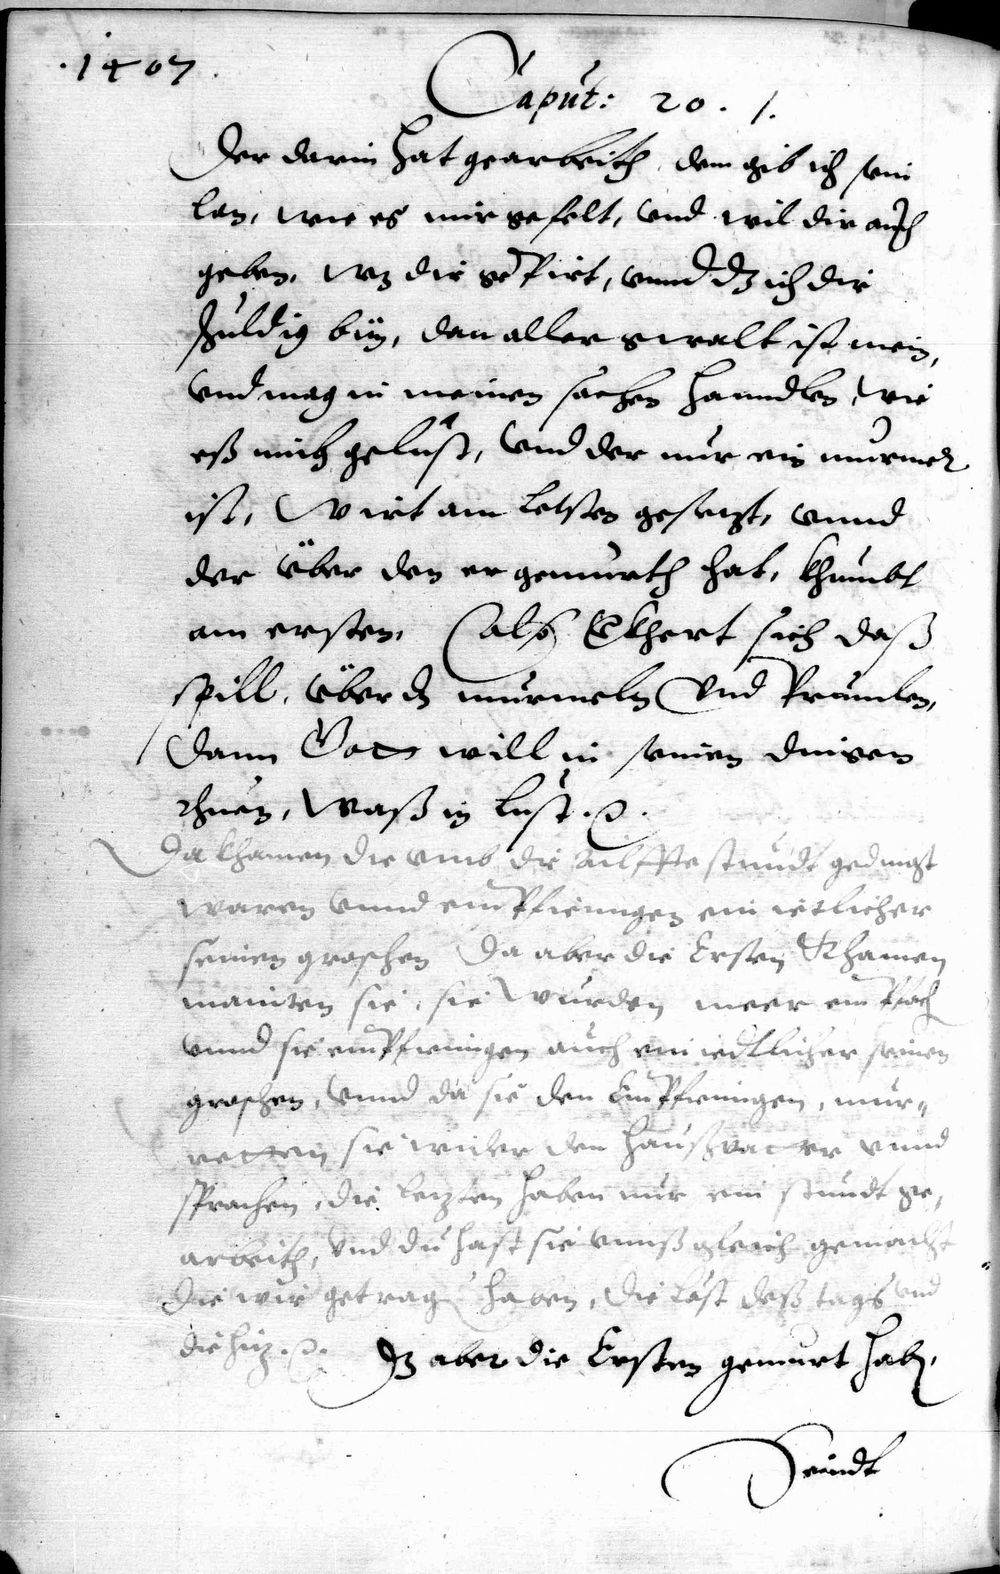 ·1407·
Caput: 20. 1.
Der darin hat gearbeith, dem gib ich sein
lon, wie es mir gefelt, vnd wil dir auch
geben, wz dir gepirt, vnnd dz ich dir
schuldig bin, dan aller gwalt ist mein,
vnd mag in meinen sachen hanndlen, wie
eß mich gelust, vnd der nur ein murmler
ist, Wirt am letsten gesetzt, vnnd
der über den er gemurth hat, khumbt
am ersten, also Ekhert sich daß
spill, über dz murmeln vnd brumlen,
dann Gott will in seinen dingen
thuen, waß in lust.
Da khamen die vmb die ailffte stundt gedingt
waren vnnd empfiengen ein ietlicher
seinen groschen Da aber die Ersten khamen
mainten sie, sie wurden meer empfach
vnnd sie empfiengen auch ein iedtlicher seinen
groschen, vnnd da sie den Empfiengen, mur„
retten sie wider den haußvatter vnnd
sprachen, die letzten haben nur ein stundt ge„
arbeith, vnd du hast sie vnnß gleich gemacht
Die wir getrag haben, die last deß tags vnd
die hitz. Dz aber die Ersten gemurt hab,
Seindt